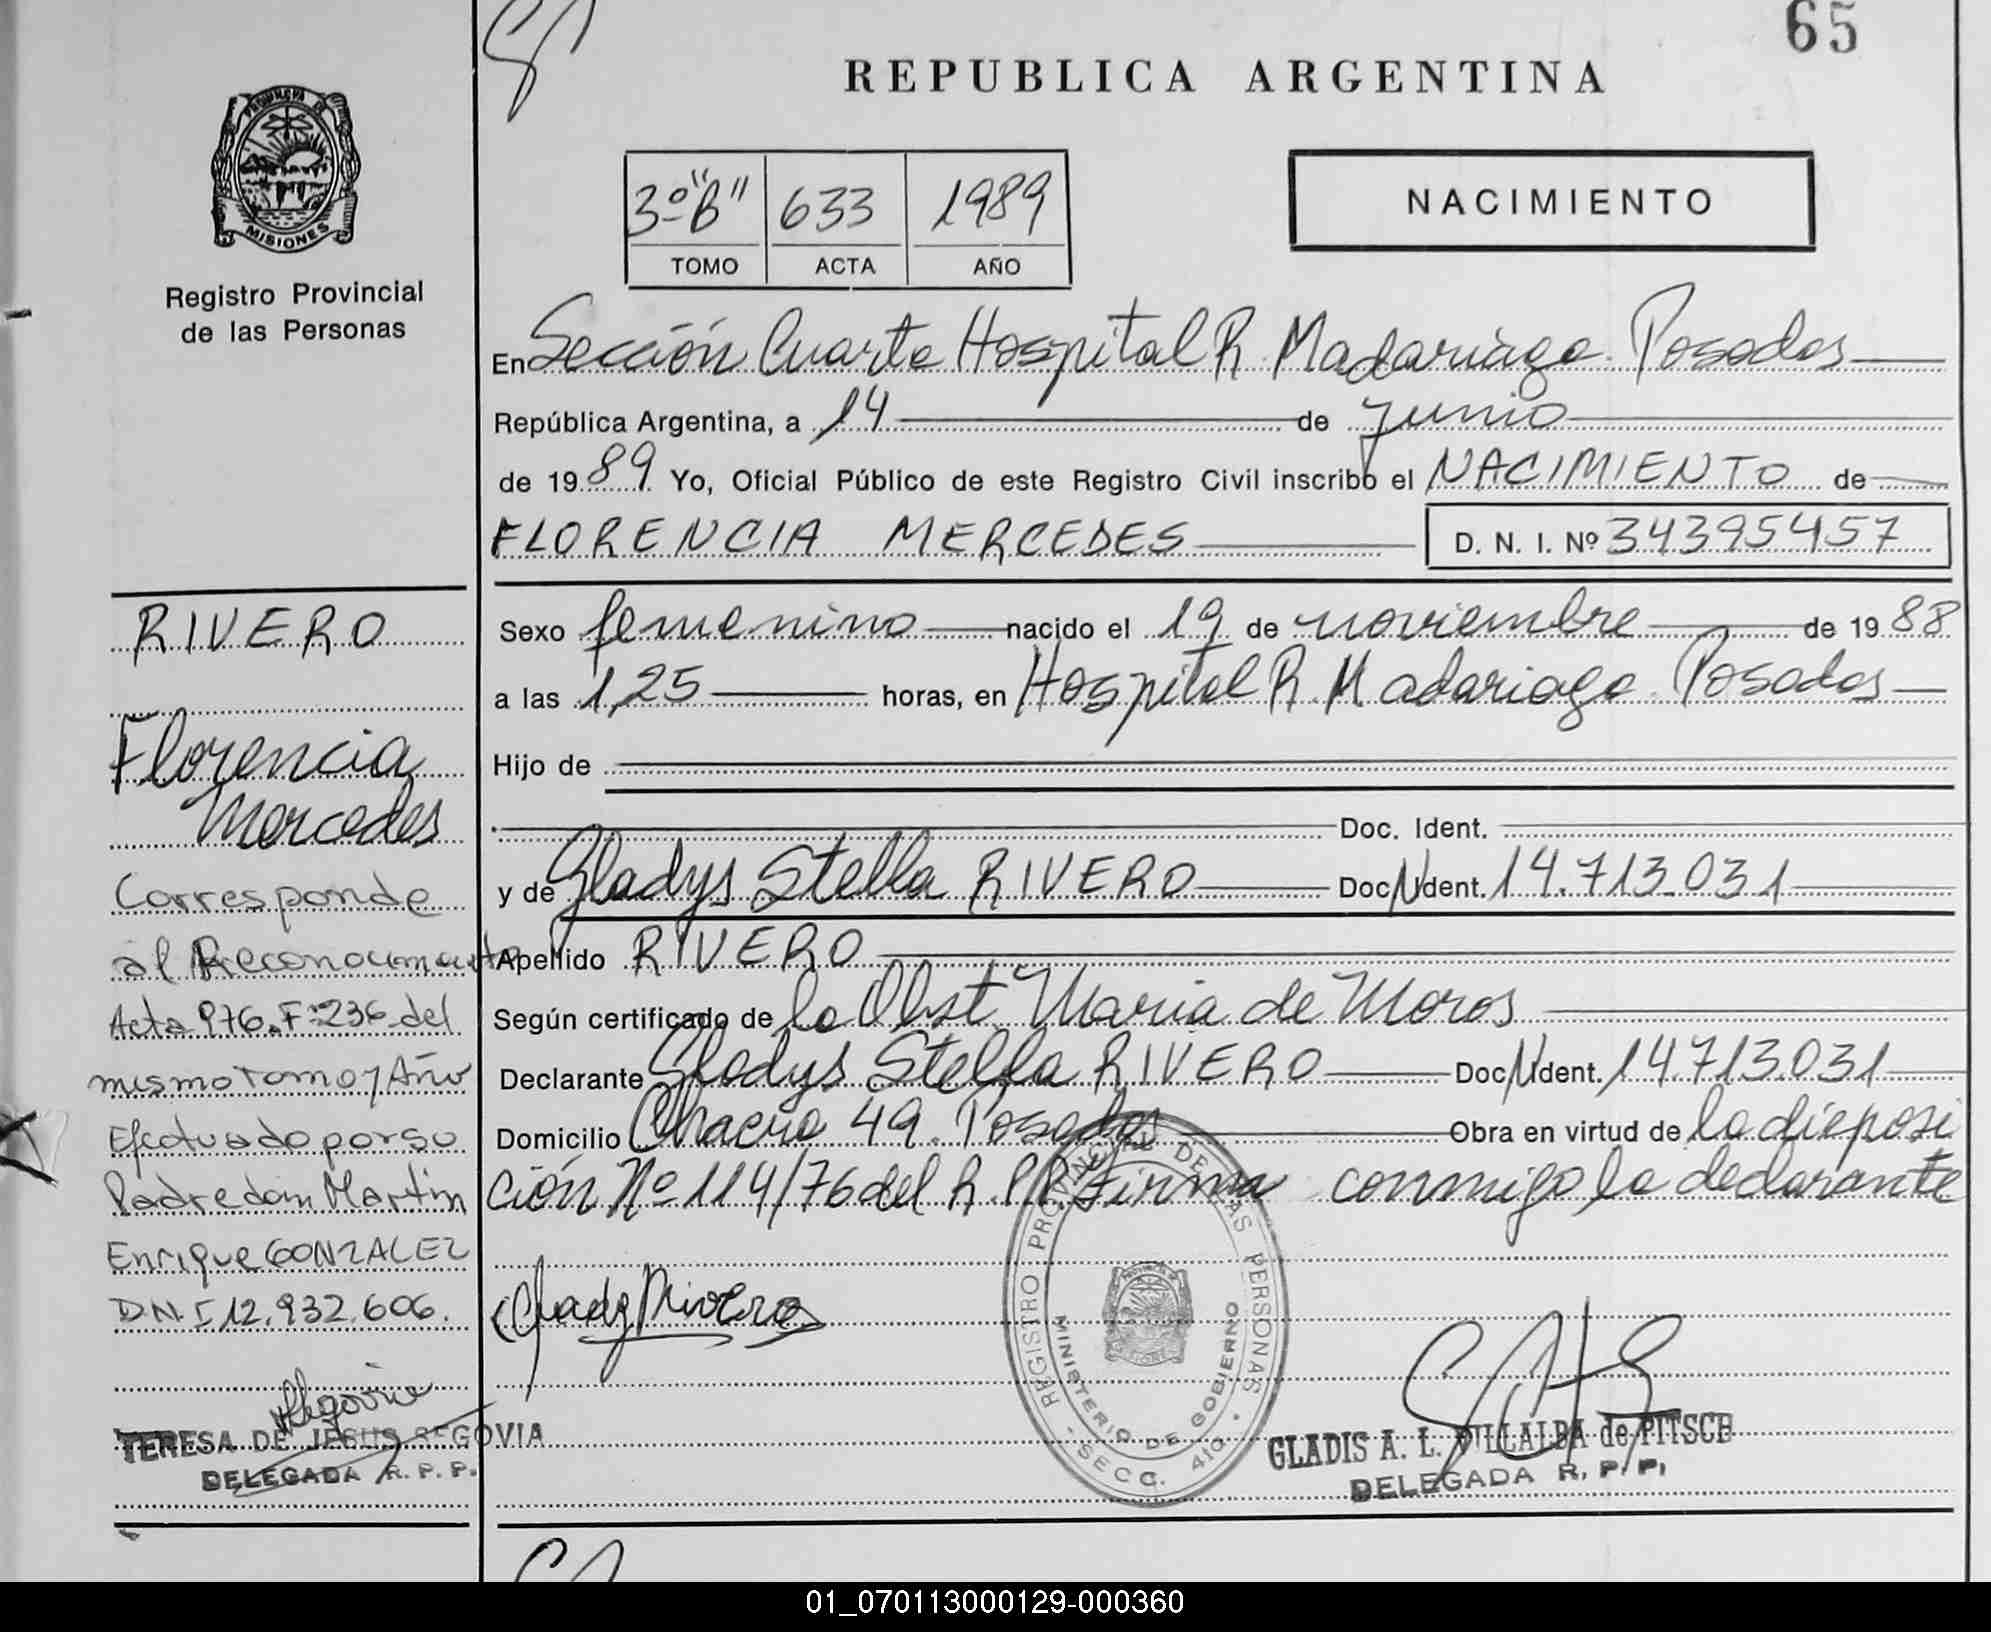 65
REPUBLICA ARGENTINA
PROVINCIA DE
MISIONES
Registro Provincial
de las Personas
3º "B" 633 1989
TOMO ACTA AÑO
NACIMIENTO
En Sección Cuarta Hospital R. Madariaga. Posadas
República Argentina, a 14 de junio
de 1989 Yo, Oficial Público de este Registro Civil inscribo el NACIMIENTO de
FLORENCIA MERCEDES D. N. I. Nº 34395457
Sexo femenino nacido el 19 de noviembre de 1988
a las 1,25 horas, en Hospital R. Madariaga. Posadas
Hijo de
Doc. Ident.
y de Gladys Stella RIVERO Doc. Ident. 14.713.031
Apellido RIVERO
Según certificado de la Obst. Maria de Moros
Declarante Gladys Stella RIVERO Doc. Ident. 14.713.031
Domicilio Chacra 49. Posadas Obra en virtud de la disposi
ción Nº 114/76 del R.P.P. Firma conmigo la declarante
Glady Rivero
RIVERO
Florencia
Mercedes
Corresponde
al Reconocimiento
Acta 976. Fº 236 del
mismo Tomo y Año
Efectuado por su
Padre don Martin
Enrique GONZALEZ
D.N.I 12.932.606.
Segovia
TERESA DE JESUS SEGOVIA
DELEGADA R. P. P.
REGISTRO PROVINCIAL DE LAS PERSONAS
MINISTERIO DE GOBIERNO
SECC. 4ta.
GLADIS A. L. VILLALBA de PITSCH
DELEGADA R. P. P.
01_070113000129-000360